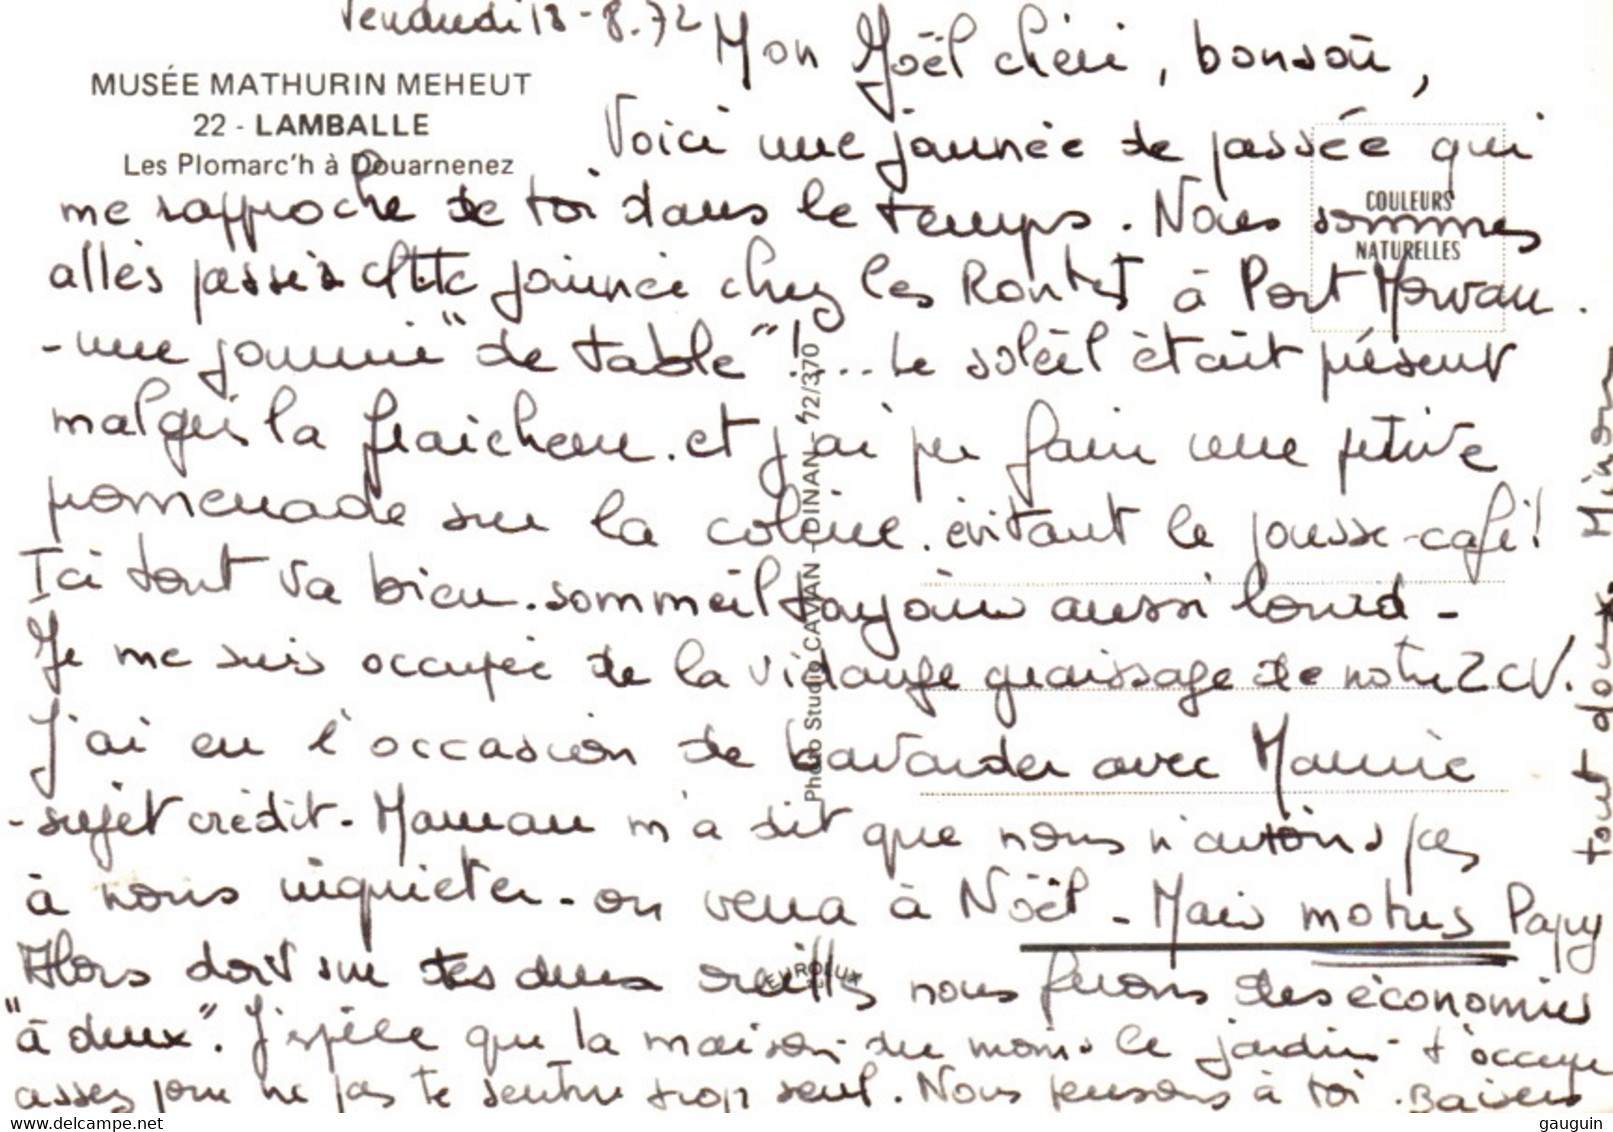 Vendredi 18-8.72
Mon Joël chéri, bonsoir,
MUSÉE MATHURIN MEHEUT
22 - LAMBALLE
Les Plomarc'h à Douarnenez
Voici une journée de passée qui
me rapproche de toi dans le temps. Nous sommes
COULEURS
NATURELLES
allés passés cette journée chez les à Port Morvan.
- une journée "de table"!... Le soleil était présent
malgré la fraicheur. et j'ai pu faire une petite
promenade sur la colline. évitant le pousse-café!
Ici tout va bien. sommeil toujours aussi lourd -
Je me suis occupée de la vidange graissage de notre 2 CV.
J'ai eu l'occasion de bavarder avec Maurice
- sujet crédit - Maman m'a dit que nous n'avions pas
à nous inquiéter - on verra à Noël - Mais motus Papy
Alors dort sur tes deux oreilles nous ferons des économies
"à deux". J'espère que la maison - du moins le jardin - t'occupe
assez pour ne pas te sentir trop seul. Nous pensons à toi. Baisers
tout doux
Photo Studio CAVAN - DINAN - 72/370
EUROLUX
www.delcampe.net
gauguin